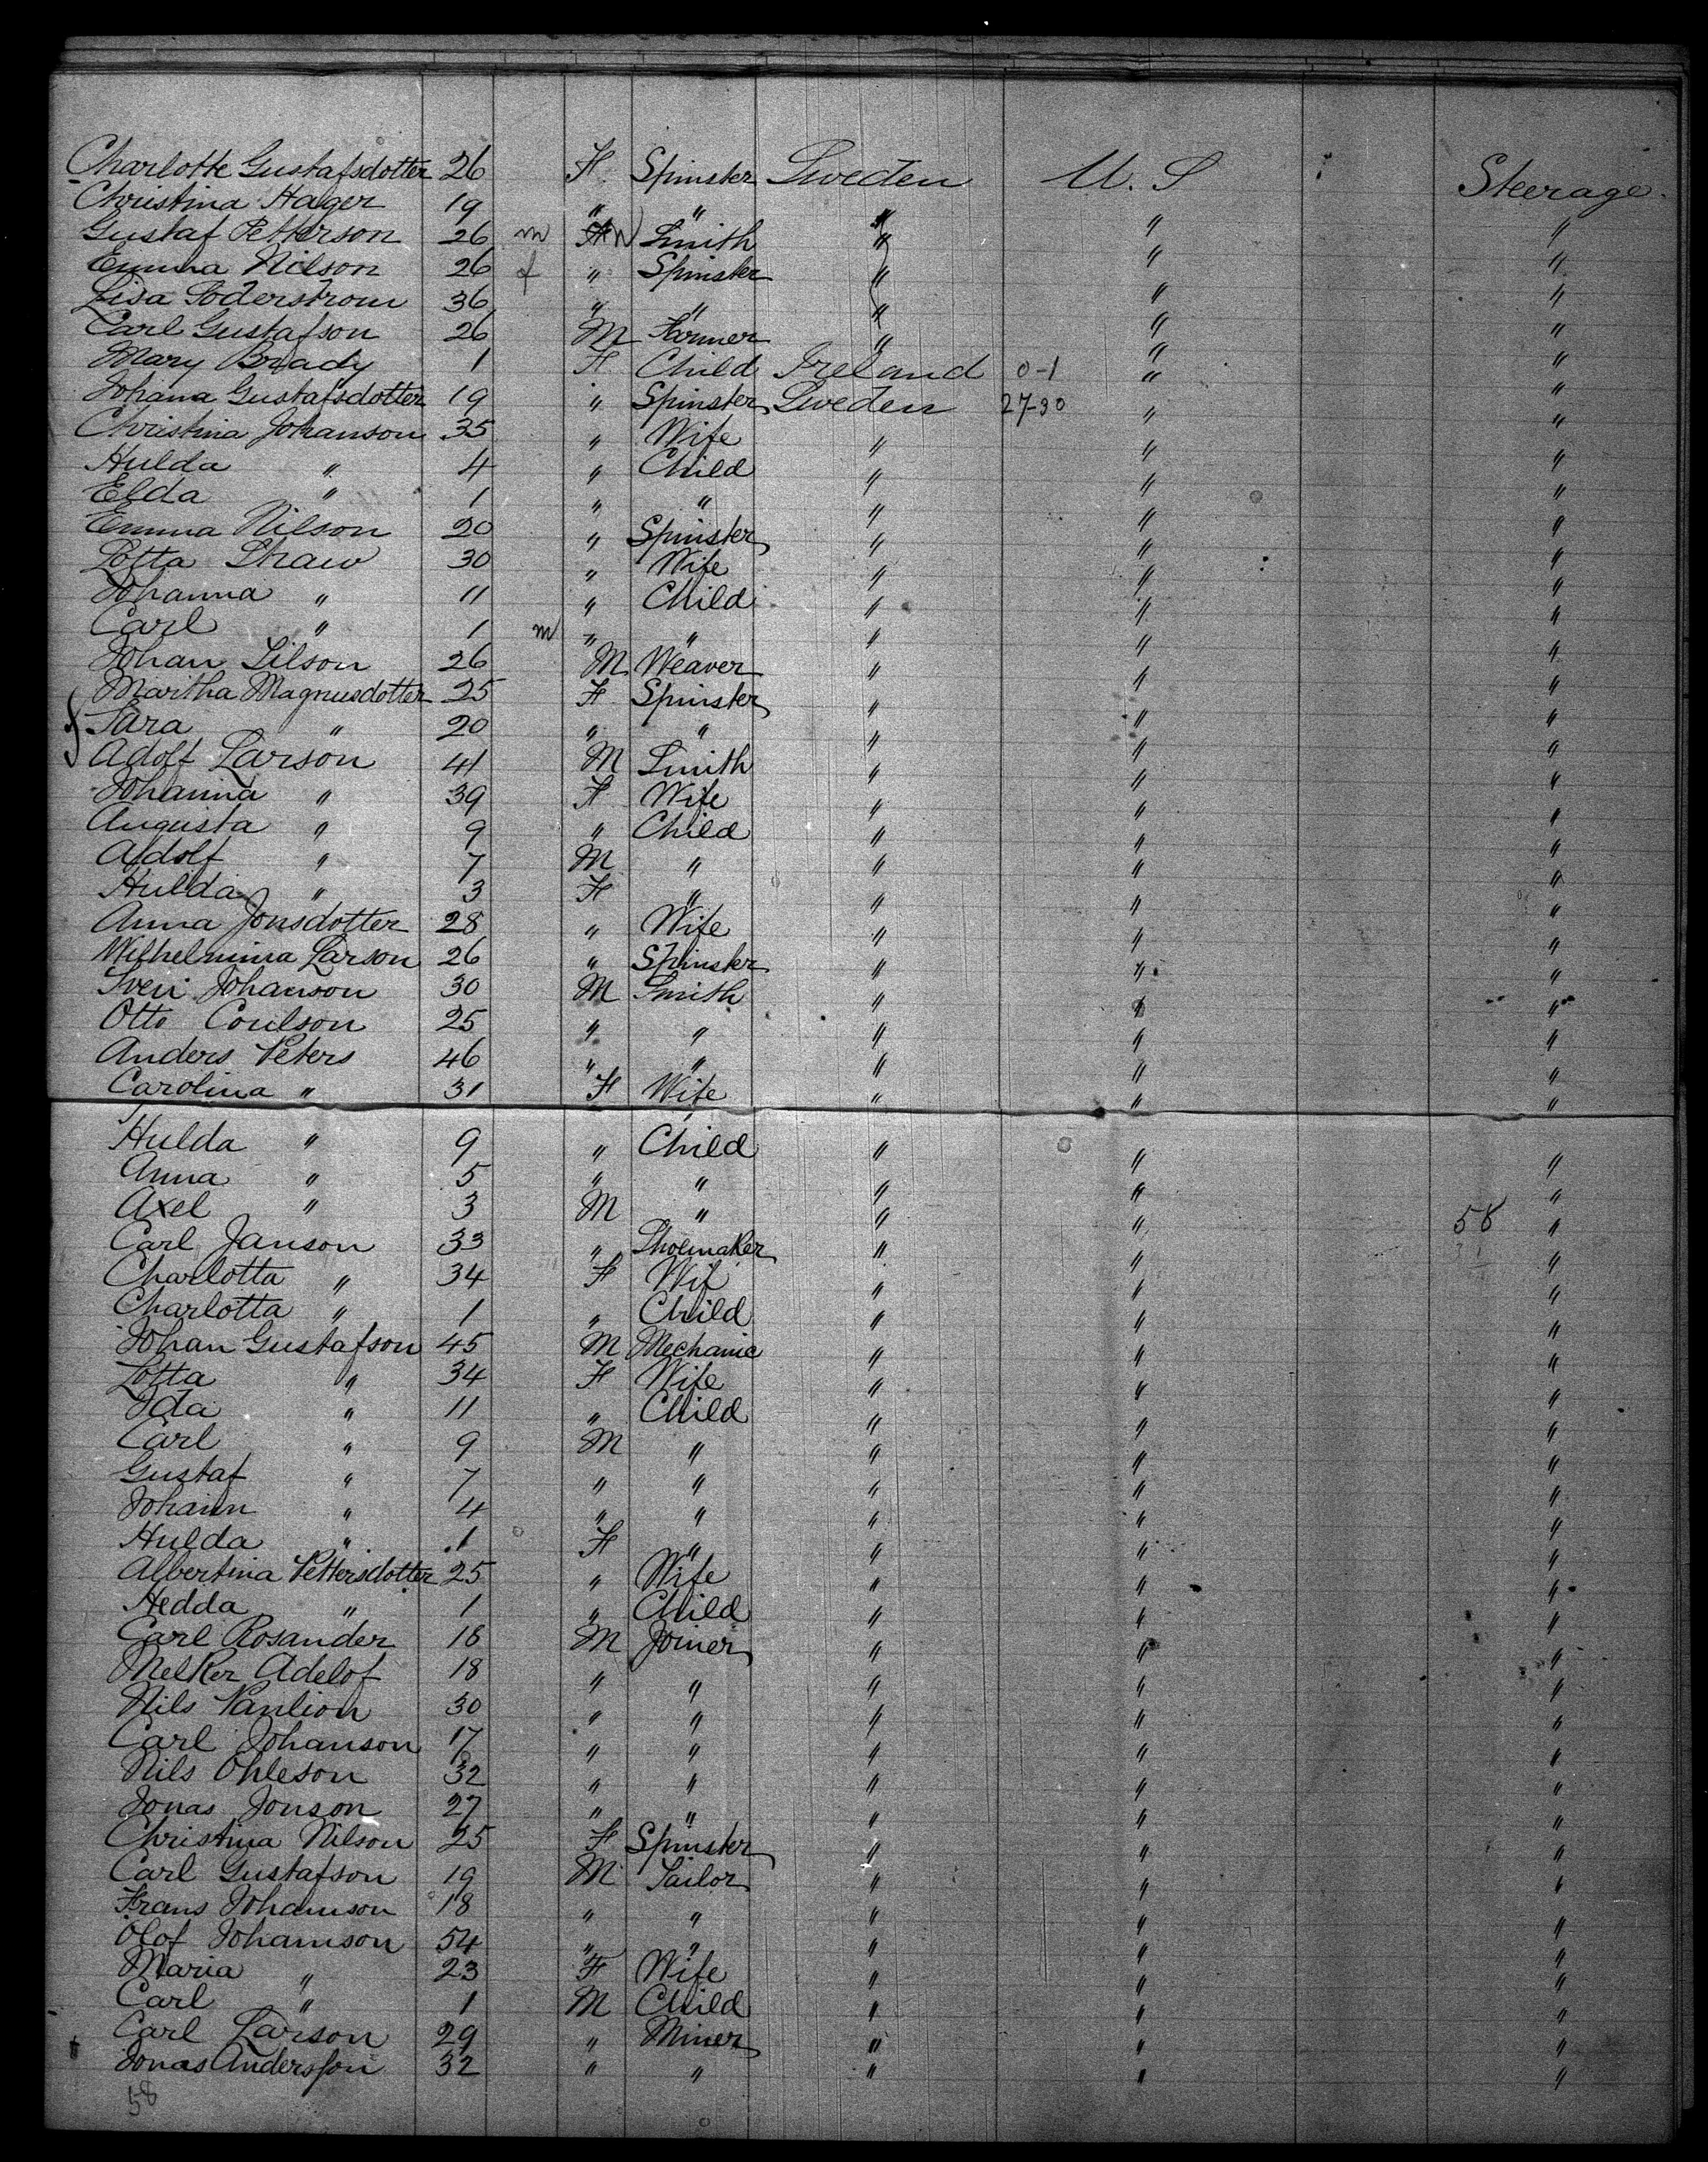 Charlotte Gustafsdotter 26 F Spinster Sweden U.S Steerage
Christina Hager 19 " " " " "
Gustaf Petterson 26 m M Smith " " "
Emma Nilson 26 f " Spinster " " "
Lisa Soderstrom 36 " " " " "
Carl Gustafson 26 M Farmer " " "
Mary Brady 1 F Child Ireland 0-1 " "
Johana Gustafsdotter 19 " Spinster Sweden 27-30 " "
Christina Johanson 35 " Wife " " "
Hulda " 4 " Child " " "
Elda " 1 " " " " "
Emma Nilson 20 " Spinster " " "
Lotta Shaw 30 " Wife " " "
Johanna " 11 " Child " " "
Carl " 1 m " " " " "
Johan Lilson 26 M Weaver " " "
Martha Magnusdotter 25 F Spinster " " "
Sara " 20 " " " " "
Adolf Larson 41 M Smith " " "
Johanna " 39 F Wife " " "
Augusta " 9 " Child " " "
Adolf " 7 M " " " "
Hulda " 3 F " " " "
Anna Jonsdotter 28 " Wife " " "
Wilhelmina Larson 26 " Spinster " " "
Sven Johanson 30 M Smith " " "
Otto Coulson 25 " " " " "
Anders Peters 46 " " " " "
Carolina " 31 F Wife " " "
Hulda " 9 " Child " " "
Anna " 5 " " " " "
Axel " 3 M " " " 58 "
Carl Janson 33 " Shoemaker " " "
Charlotta " 34 F Wif " " "
Charlotta " 1 " Child " " "
Johan Gustafson 45 M Mechanic " " "
Lotta " 34 F Wife " " "
Ida " 11 " Child " " "
Carl " 9 M " " " "
Gustaf " 7 " " " " "
Johann " 4 " " " " "
Hulda " 1 F " " " "
Albertina Pettersdotter 25 " Wife " " "
Hedda " 1 " Child " " "
Carl Rosander 18 M Joiner " " "
Melker Adelof 18 " " " " "
Nils 30 " " " " "
Carl Johanson 17 " " " " "
Nils Ohleson 32 " " " " "
Jonas Jonson 27 " " " " "
Christina Nilson 25 F Spinster " " "
Carl Gustafson 19 M Tailor " " "
Frans Johanson 18 " " " " "
Olof Johanson 54 " " " " "
Maria " 23 F Wife " " "
Carl " 1 M Child " " "
Carl Larson 29 " Miner " " "
Jonas Andersson 32 " " " " "
58